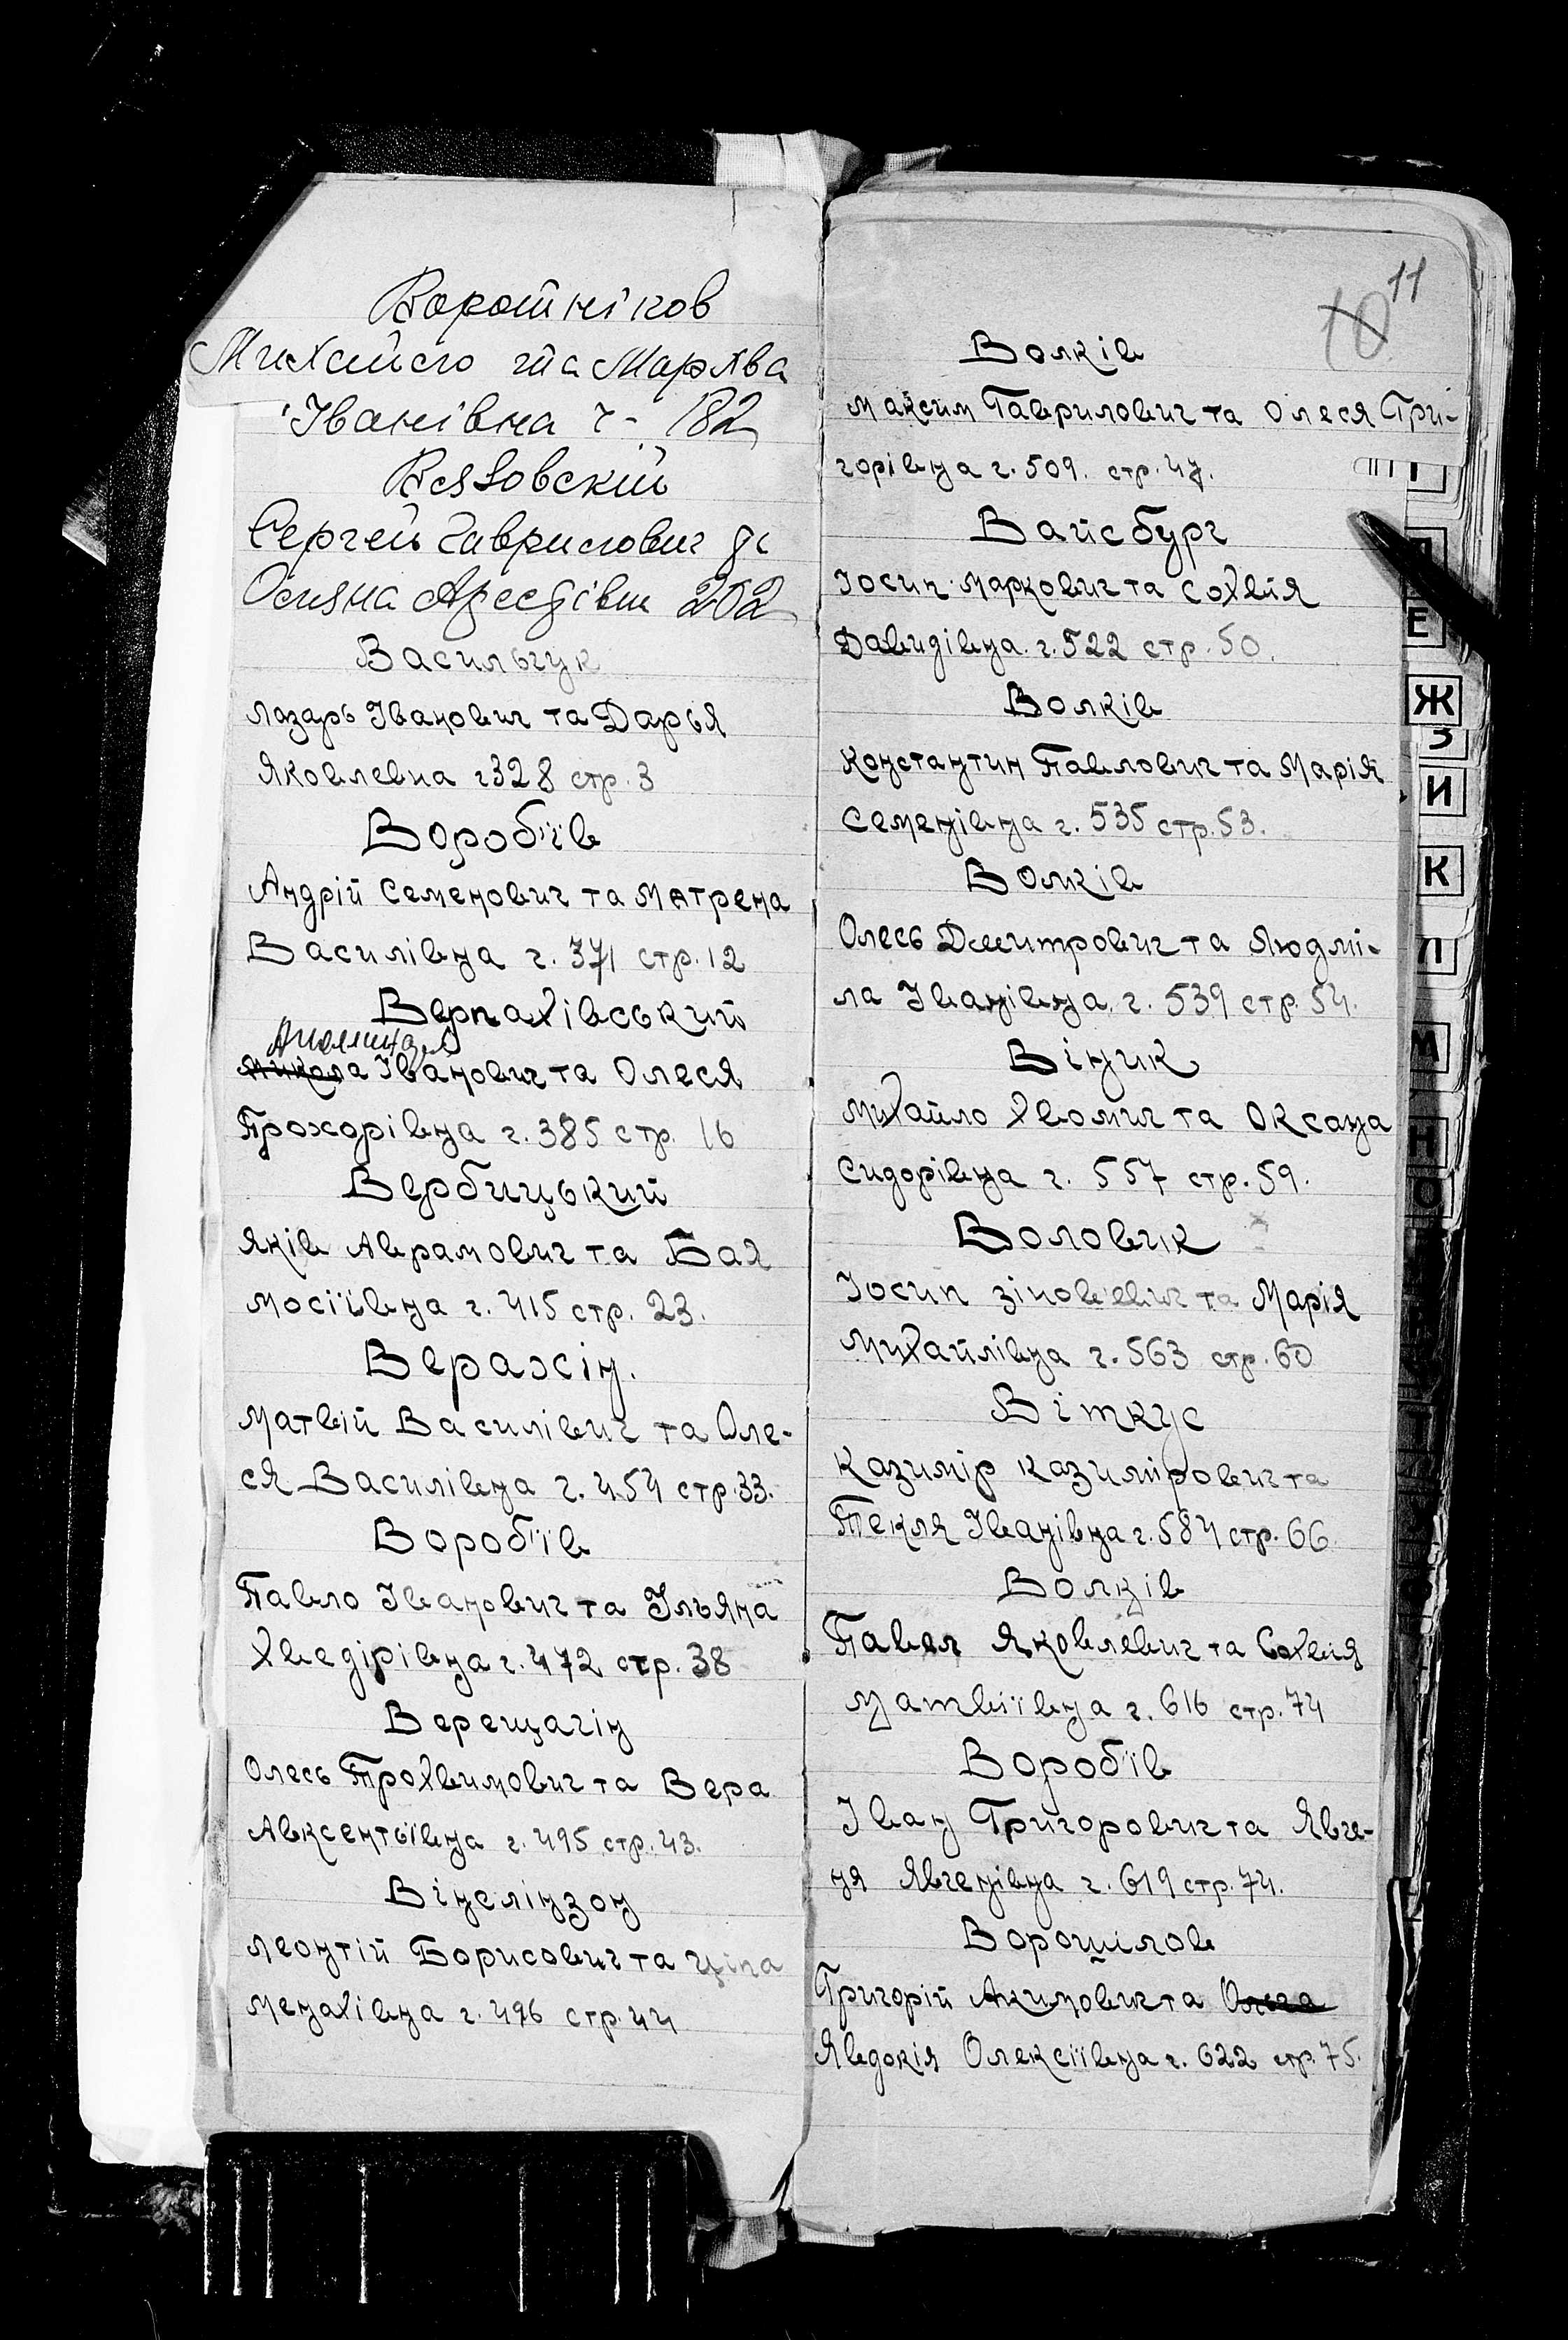 Воротніков
Михайло та Мархва
Іванівна ч- 182
Вязовскій
Сергей Гаврилович
202
Васильчук
Лазарь Іванович та Дарья
Яковлевна ч 328 стр. 3
Вороб'їв
Андрій Семенович та Матрена
Василівна ч. 371 стр. 12
Верпахівський
Микола Іванович та Олеся
Прохорівна ч. 385 стр. 16
Вербицький
Яків Аврамович та Бая
Мосіївна ч. 415 стр. 23.
Веражін.
Матвій Василівич та Оле-
ся Василівна ч. 454 стр. 33.
Вороб'їв
Павло Іванович та Ільяна
Хведірівна ч. 472 стр. 38
Верещагін
Олесь Трохвимович та Вера
Авксентьївна ч. 495 стр. 43.
Вінелінзон
Леонтій Борисович та Ціпа
Менахівна ч. 496 стр. 44
10 11
Волків
Максим Гаврилович та Олеся Гри-
горівна ч. 509. стр. 47.
Вайсбург
Іосип Маркович та Сохвія
Давидівна. ч. 522 стр. 50.
Волків
Константин Павлович та Марія
Семенівна ч. 535 стр. 53.
Волків
Олесь Дмитрович та Людмі-
ла Іванівна. ч. 539 стр. 54.
Віник
Михайло Хвомич та Оксана
Сидорівна ч. 557 стр. 59.
Воловик
Іосип Зіновьевич та Марія
Михайлівна ч. 563 стр. 60
Віткус
Казимір Казимірович та
Текля Іванівна ч. 584 стр. 66.
Волків
Павел Яковлевич та Сохвія
Матвіївна ч. 616 стр. 74
Вороб'їв
Іван Григорович та Явге-
ня Явгенівна ч. 619 стр. 74.
Ворошілов
Григорій Акимович та Ольга
Явдокія Олексіївна ч. 622 стр. 75.
Г
Е
Ж
З
И
К
Л
М
Н
О